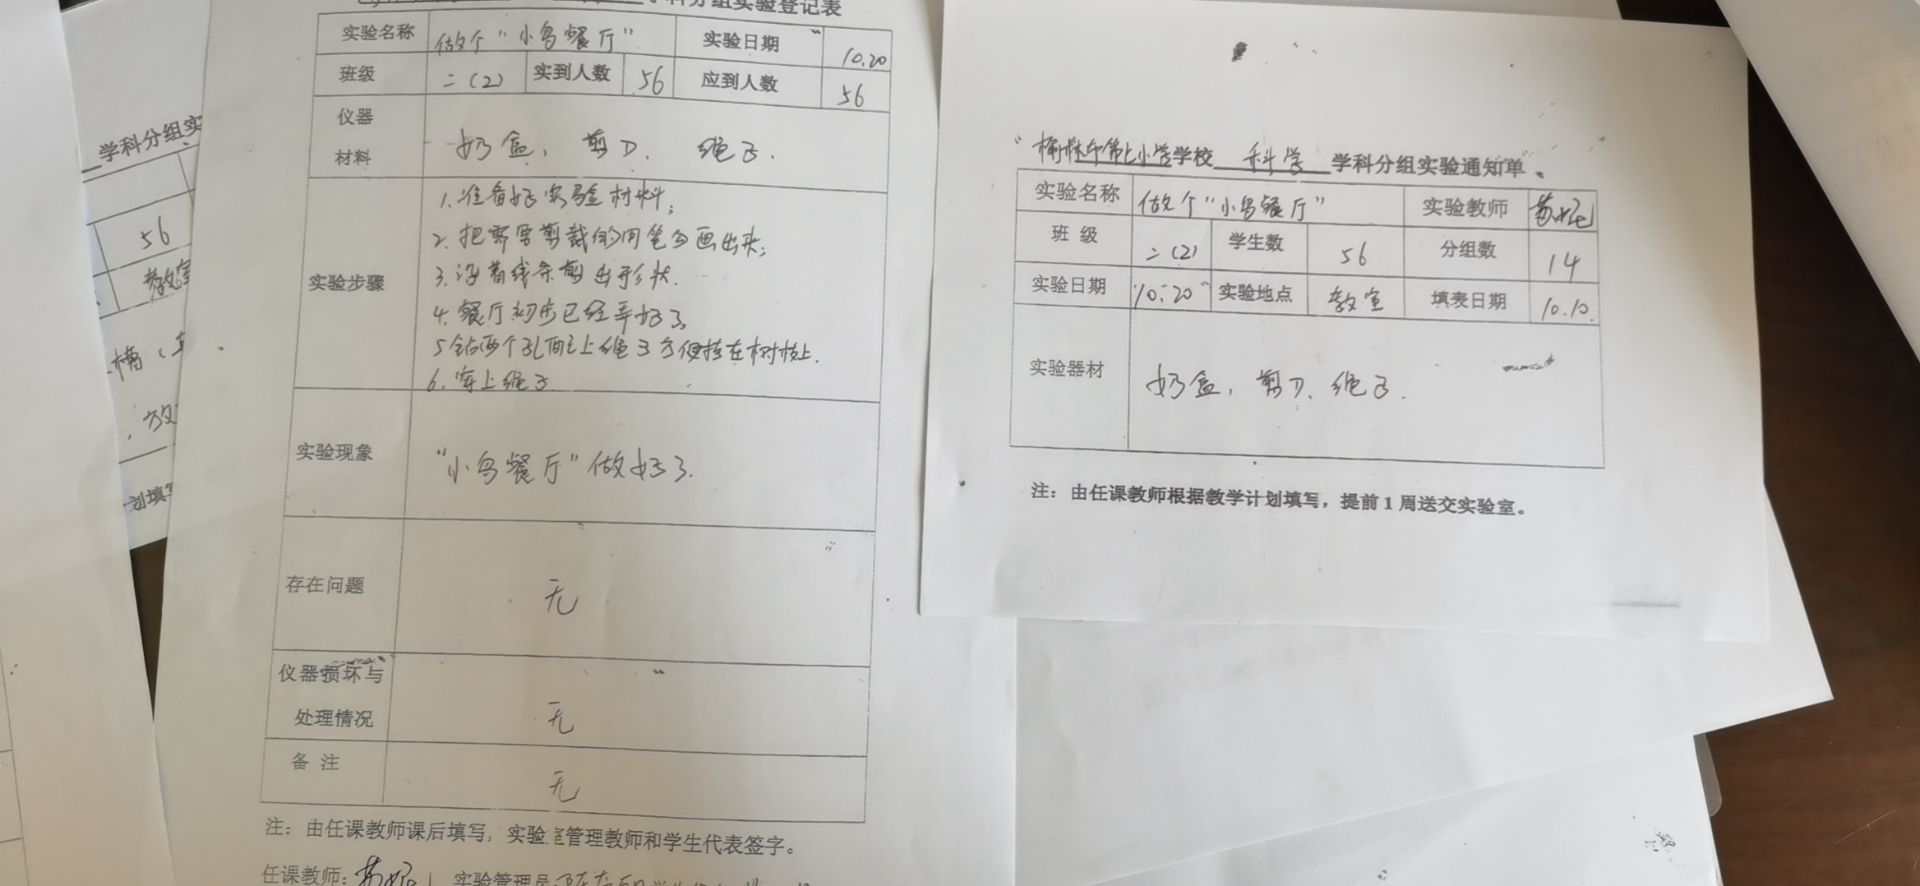 学科分组实验登记表
实验名称 做个“小鸟餐厅” 实验日期 10.20
班级 二(2) 实到人数 56 应到人数 56
仪器
材料 奶盒，剪刀、绳子.
实验步骤
1.准备好实验材料；
2.把需要剪裁的用笔勾画出来；
3.沿着线条剪出形状.
4.餐厅初步已经弄好了
5钻两个孔配上绳子方便挂在树枝上.
6.穿上绳子
实验现象 “小鸟餐厅”做好了.
存在问题 无
仪器损坏与
处理情况 无
备 注 无
注：由任课教师课后填写，实验室管理教师和学生代表签字。
任课教师： 实验管理员
学科分组实
56
教室
划填写
榆林市第七小学学校 科学 学科分组实验通知单
实验名称 做个“小鸟餐厅” 实验教师
班 级 二(2) 学生数 56 分组数 14
实验日期 10.20 实验地点 教室 填表日期 10.10.
实验器材 奶盒，剪刀、绳子.
注：由任课教师根据教学计划填写，提前1周送交实验室。